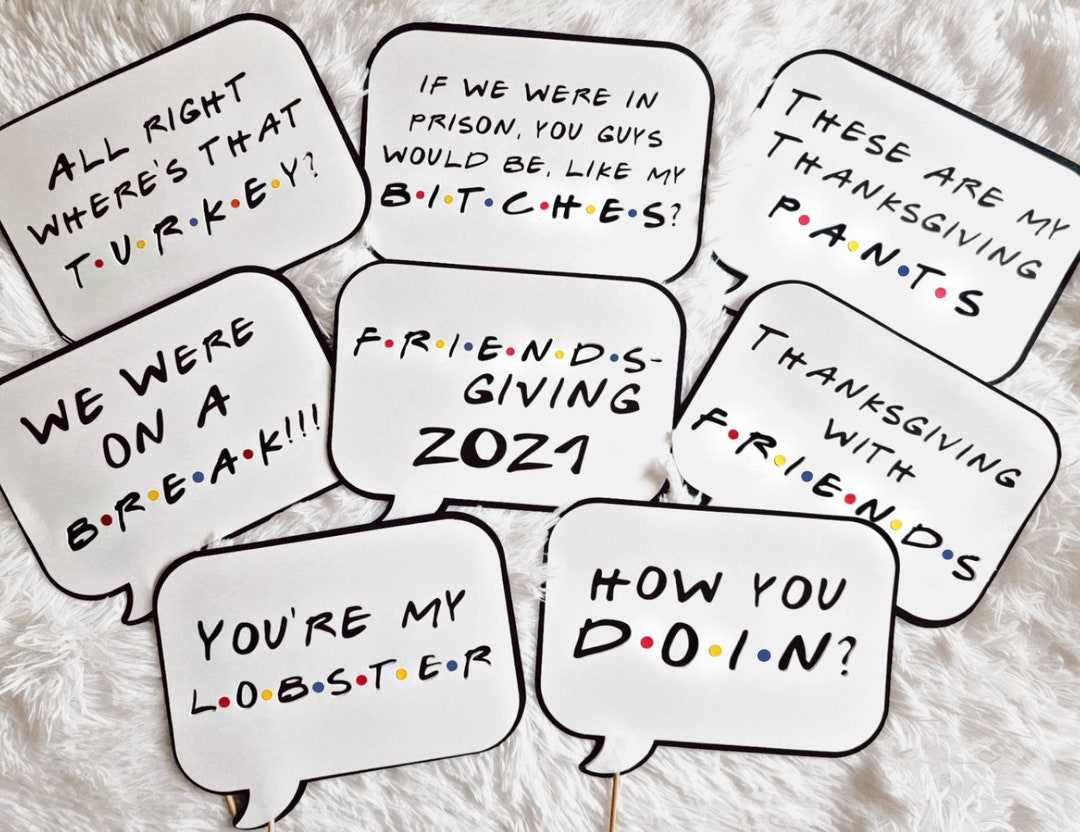 ALL RIGHT
WHERE'S THAT
T•U•R•K•E•Y?
IF WE WERE IN
PRISON, YOU GUYS
WOULD BE, LIKE MY
B•I•T•C•H•E•S?
THESE ARE MY
THANKSGIVING
P•A•N•T•S
WE WERE
ON A
B•R•E•A•K!!!
F•R•I•E•N•D•S-
GIVING
2021
THANKSGIVING
WITH
F•R•I•E•N•D•S
YOU'RE MY
L•O•B•S•T•E•R
HOW YOU
D•O•I•N?